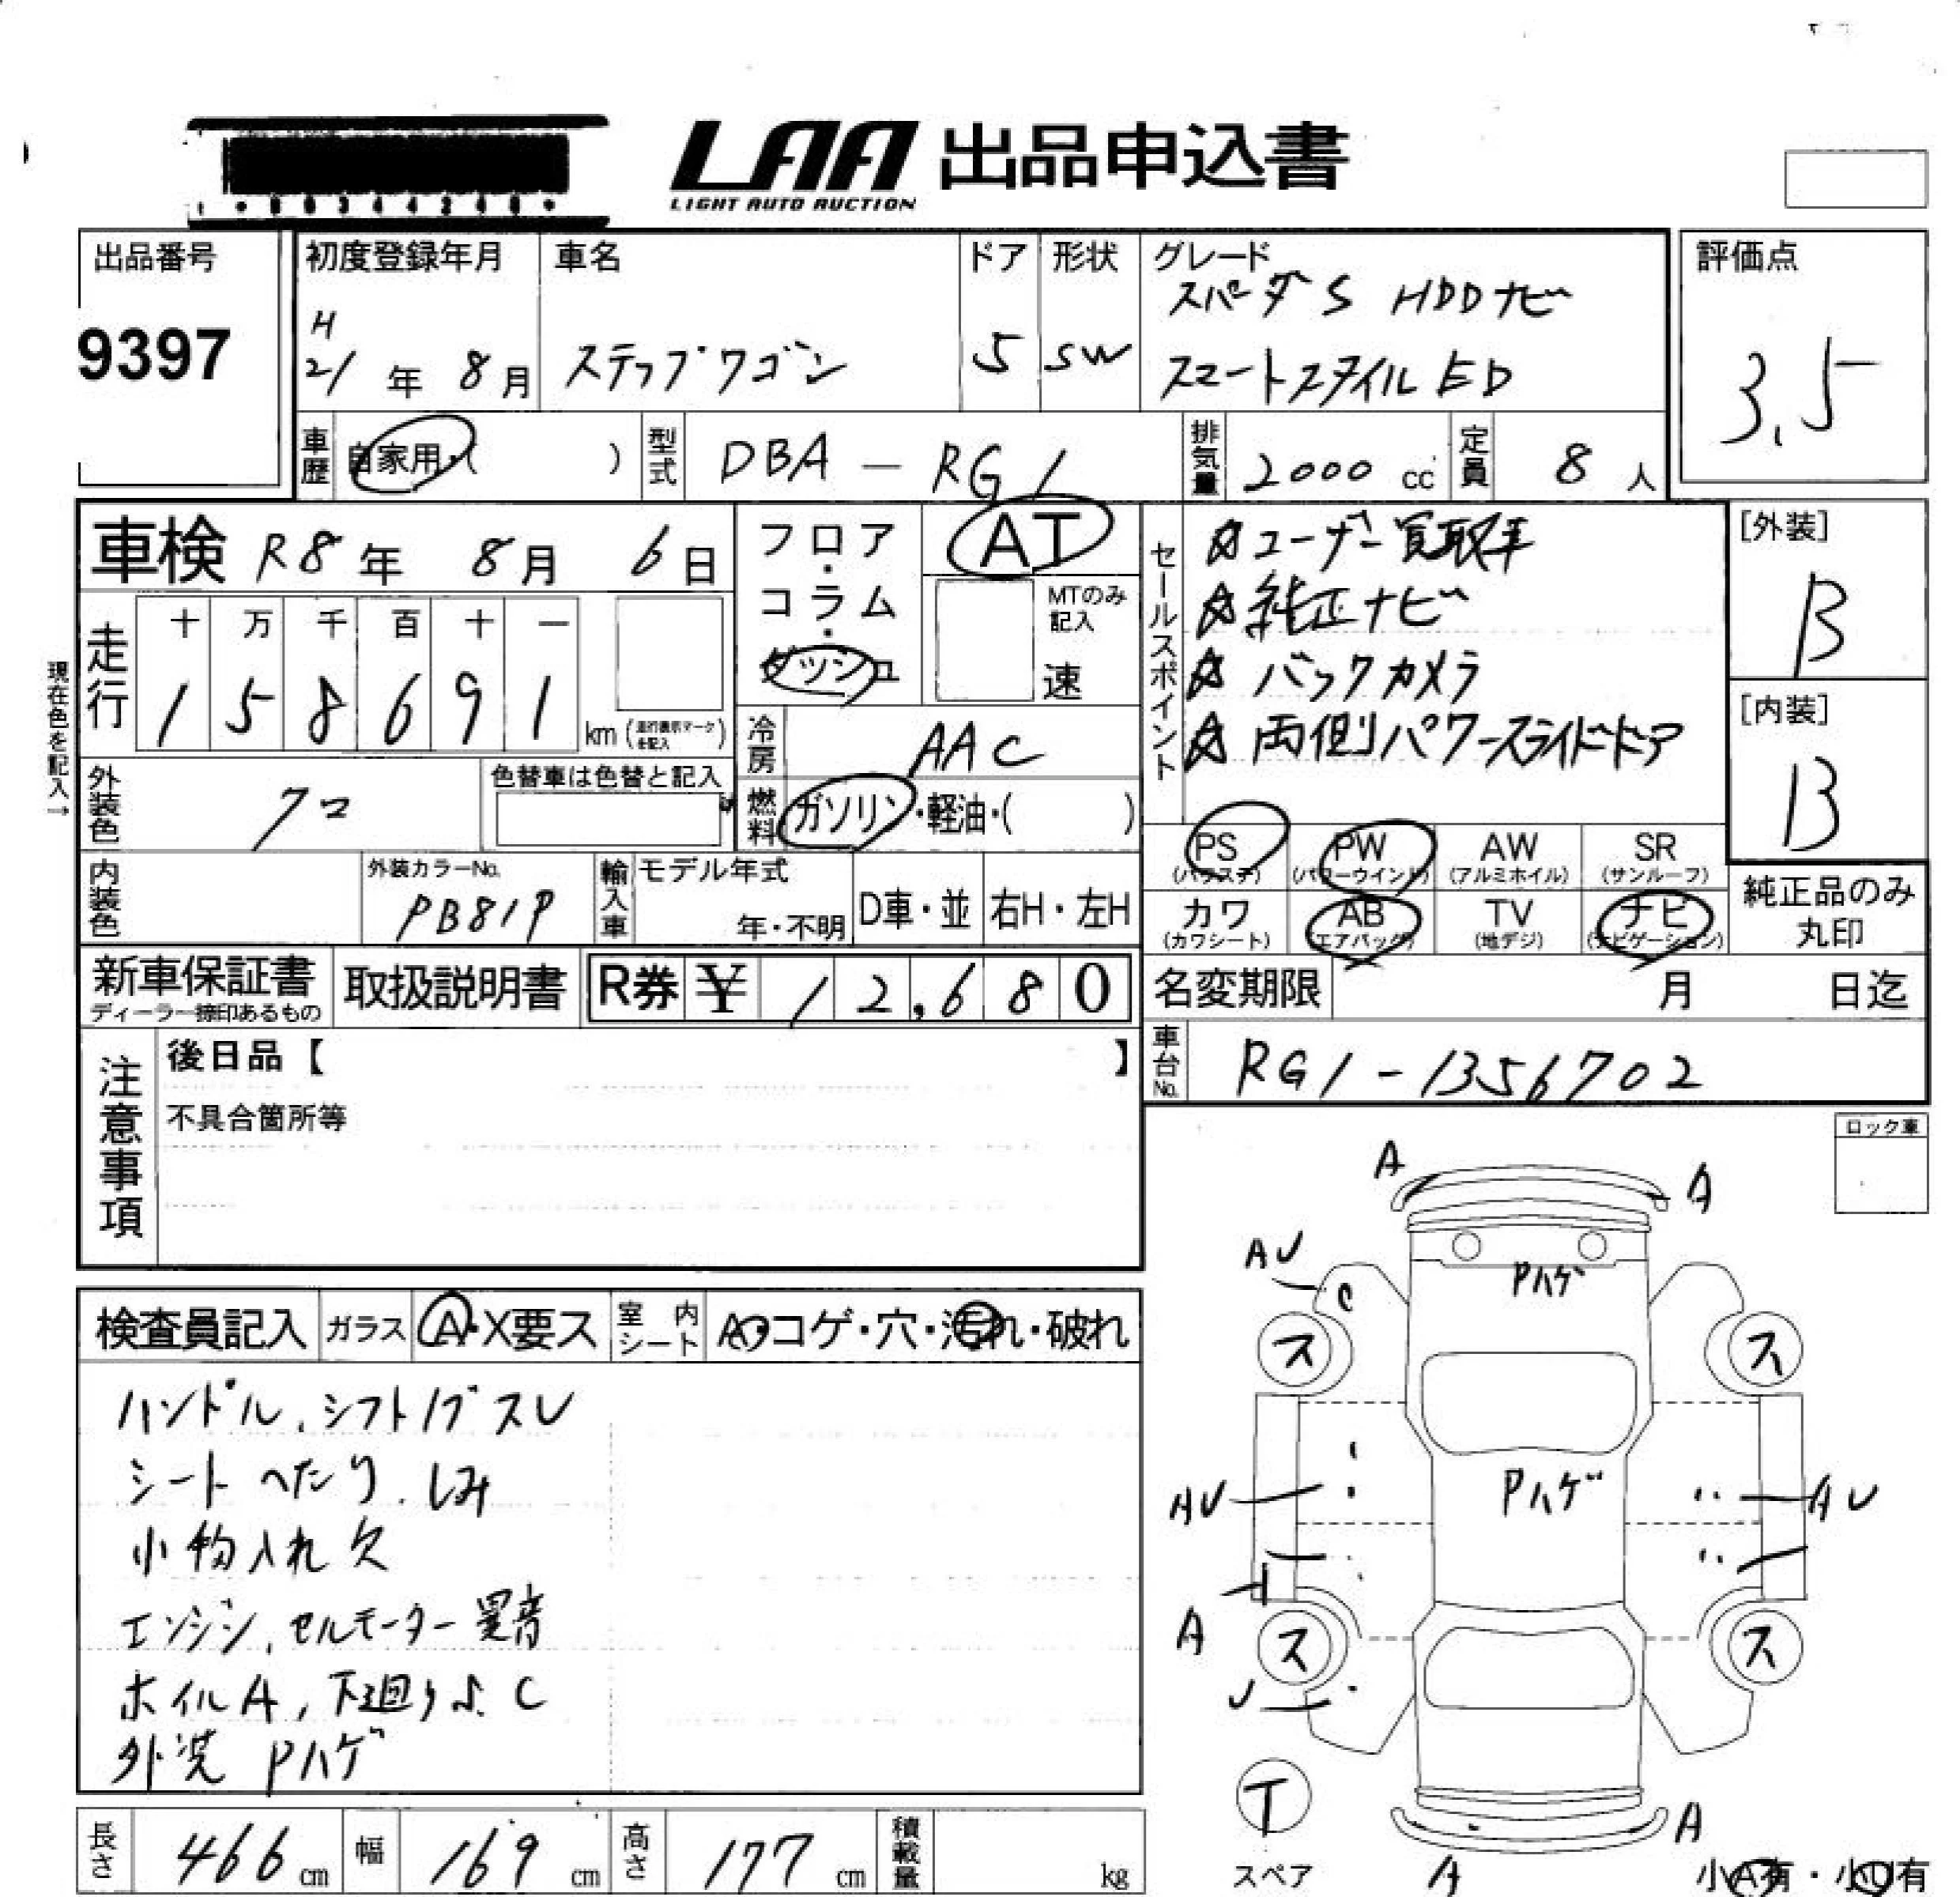 LAA 出品申込書
LIGHT AUTO AUCTION
出品番号
9397
初度登録年月
H
21年 8月
車名
ステップワゴン
ドア
5
形状
SW
グレード
スパーダS HDDナビ
スマートスタイルED
評価点
3.5
車歴
自家用・( )
型式
DBA-RG1
排気量
2000cc
定員
8人
車検 R8年 8月 6日
現在色を記入→
走行
十 万 千 百 十 一
1 5 8 6 9 1
km(走行表示マークを記入)
フロア・コラム・ダッシュ
AT
MTのみ記入
速
冷房
AAC
燃料
ガソリン・軽油・( )
外装色
クロ
色替車は色替と記入
内装色
外装カラーNo.
PB81P
輸入車
モデル年式
年・不明
D車・並
右H・左H
セールスポイント
☆ユーザー買取車
☆純正ナビ
☆バックカメラ
☆両側パワースライドドア
[外装]
B
[内装]
B
PS
(パワステ)
PW
(パワーウインド)
AW
(アルミホイル)
SR
(サンルーフ)
カワ
(カワシート)
AB
(エアバッグ)
TV
(地デジ)
ナビ
(ナビゲーション)
純正品のみ
丸印
新車保証書
ディーラー捺印あるもの
取扱説明書
R券 ¥ 12,680
名変期限 月 日迄
車台No.
RG1-1356702
注意事項
後日品【 】
不具合箇所等
ロック車
検査員記入
ガラス
A・X要ス
室内シート
A・コゲ・穴・汚れ・破れ
ハンドル、シフトノブスレ
シートへたり、しみ
小物入れ欠
エンジン、セルモーター異音
ホイルA、下廻りS、C
外装Pハゲ
A
A
AU
C
Pハゲ
ス
ス
AU
Pハゲ
AU
A
ス
ス
U
T
スペア
A
A
小A有・小U有
長さ
466cm
幅
169cm
高さ
177cm
積載量
kg